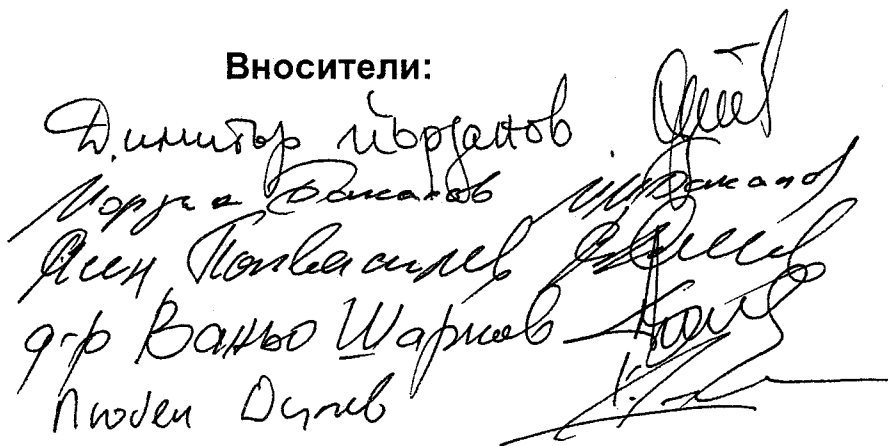 Вносители:
Димитър Йорданов
Йордан Бакалов Бакалов
Асен Попвасилев
д-р Ваньо Шарков
Любен Дилов